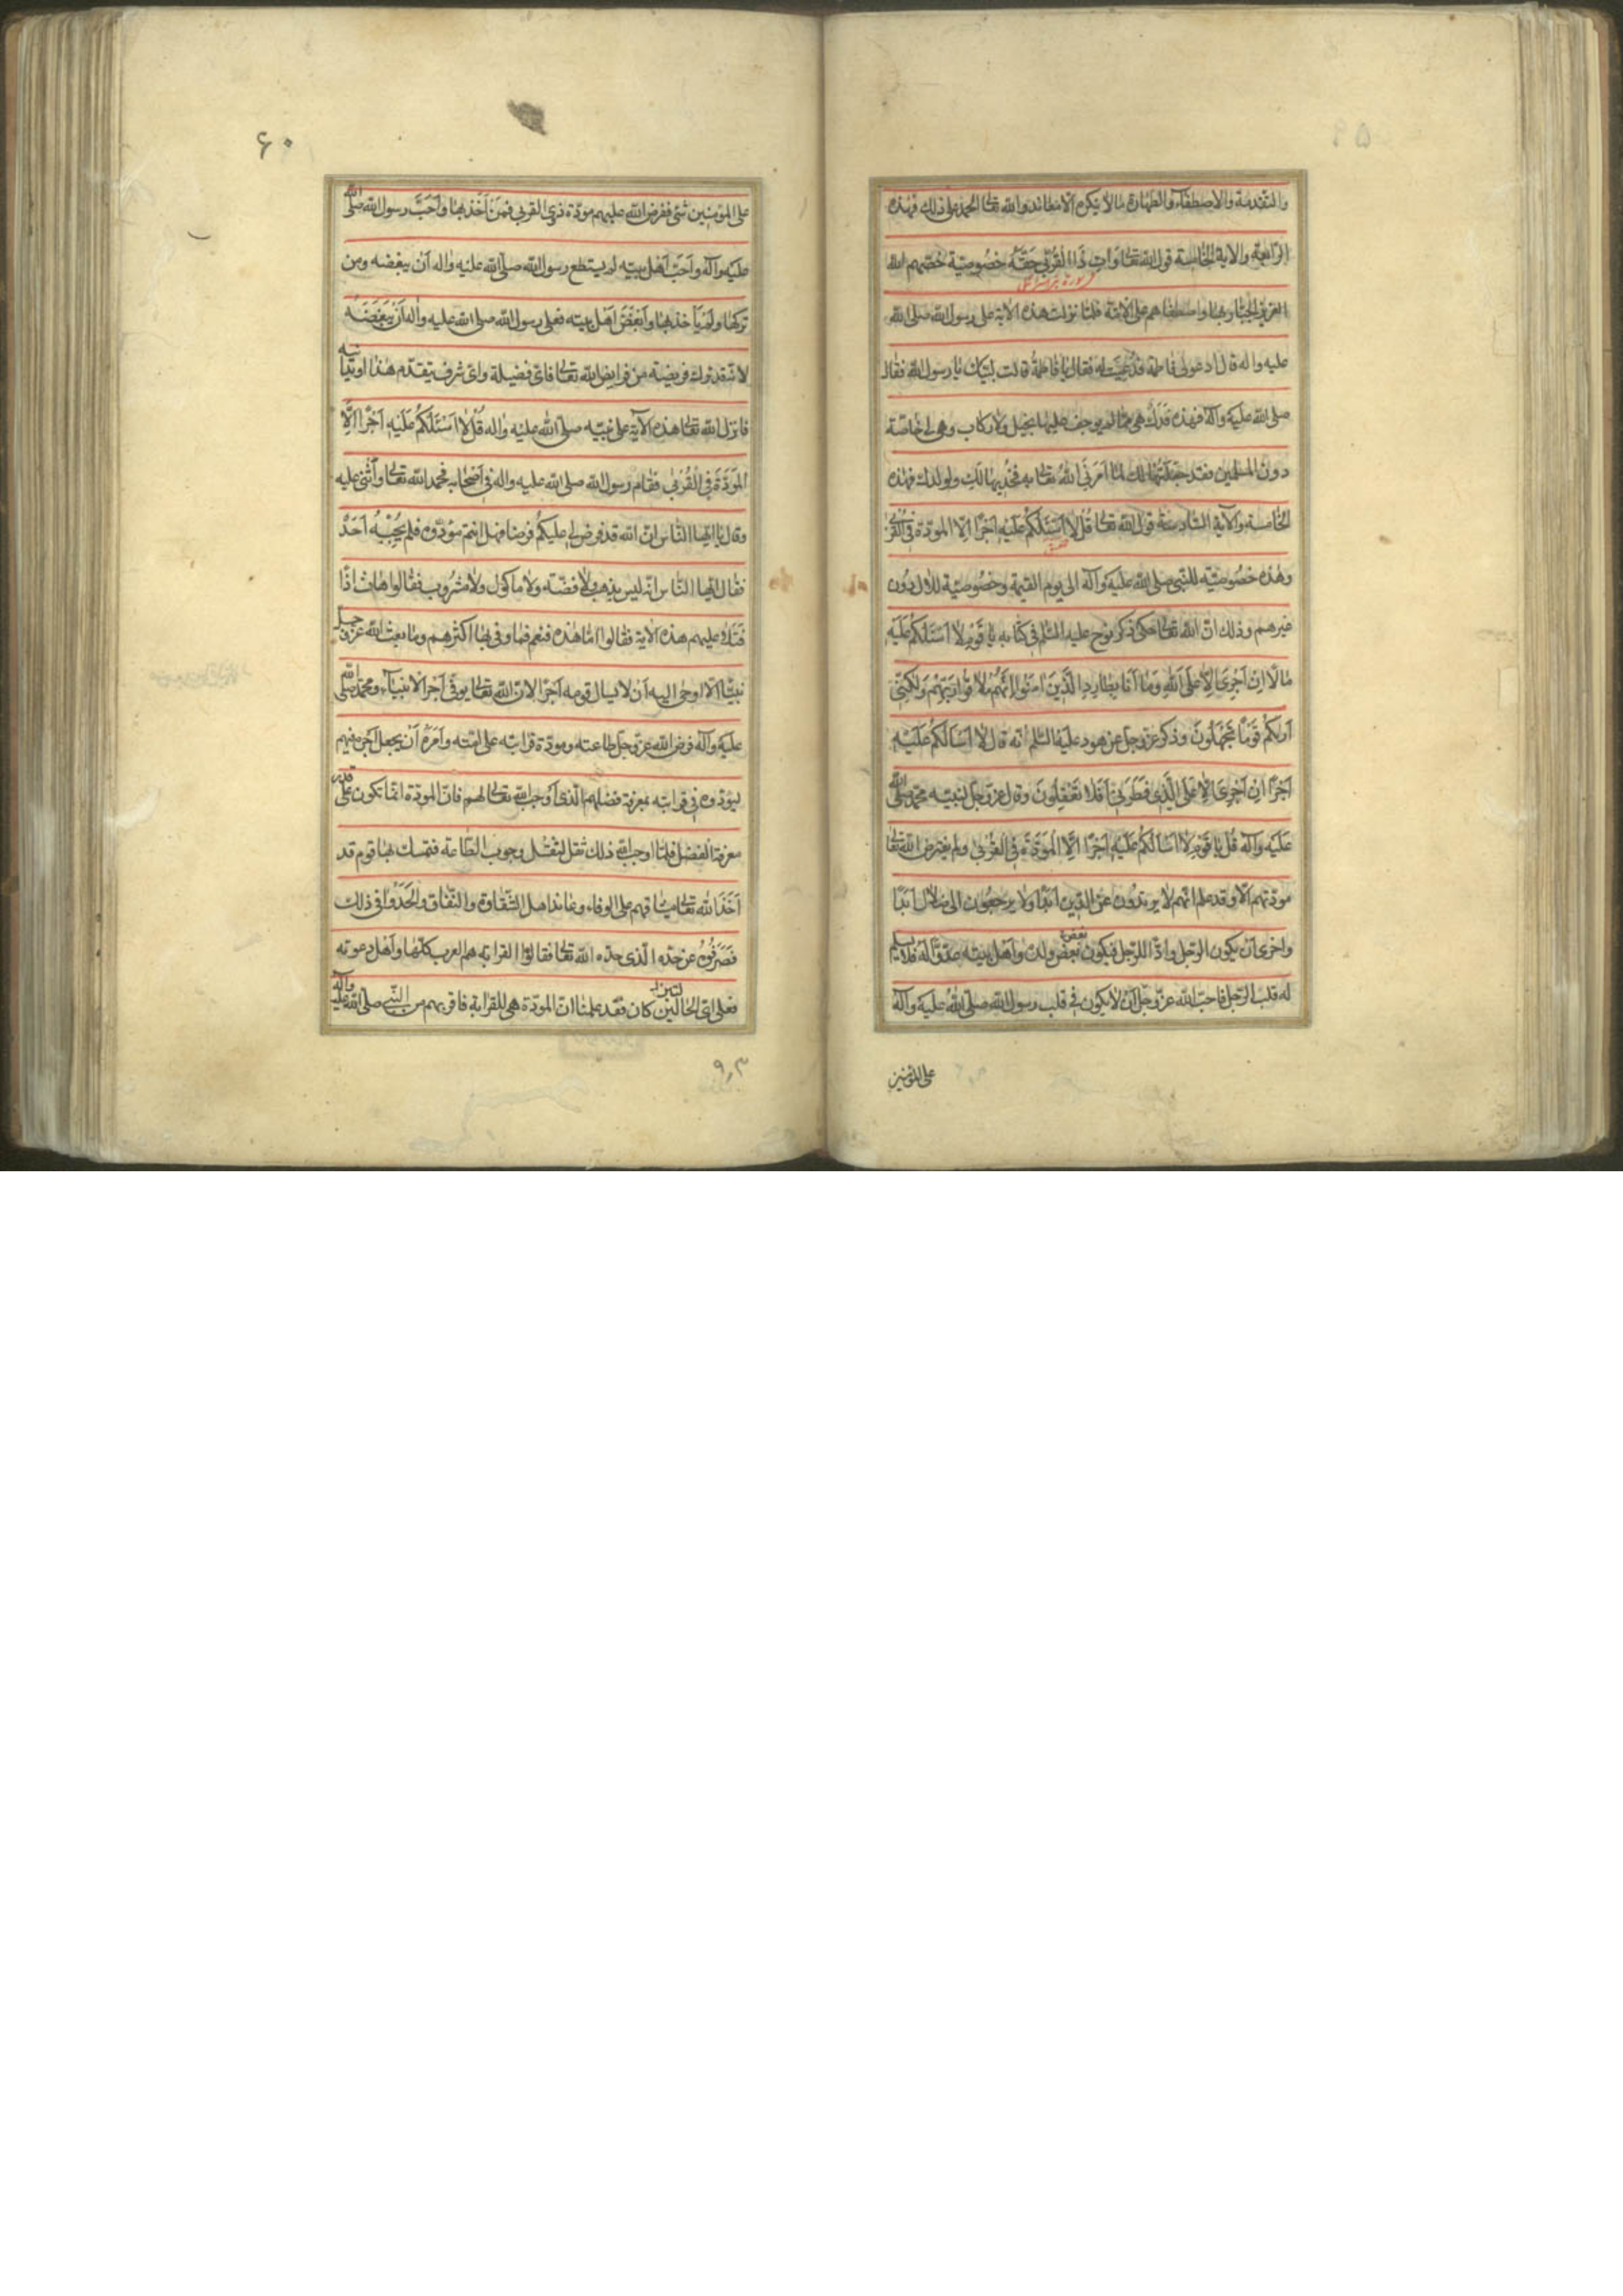 ۵۹
والتقدمة والاصطفاء والطهارة ما لا ينكره الا معاند ولله تعالى الحمد على ذلك فهذه
الرابعة والآية الخامسة قول الله تعالى وَآتِ ذَا القُرْبى حَقَّهُ خصوصيّة خصّهم الله
سورة بني اسرائيل
العزيز الجبّار بها واصطفاهم على الامّة فلمّا نزلت هذه الآية على رسول الله صلى الله
عليه واله قال ادعوا لى فاطمة فدُعِيَت له فقال يا فاطمة قالت لبّيك يا رسول الله فقال
صلى الله عليه وآله هذه فدك هى ممّا لم يوجف عليها بخيل ولا ركاب وهى لى خاصّة
دون المسلمين فقد جعلتها لك لما امرنى الله تعالى به فخذيها لك ولولدك فهذه
الخامسة والآية السّادسة قول الله تعالى قُل لا اسئلكم عليه اجرًا الّا المودّة في القربى
وهذه خصوصيّة للنّبى صلى الله عليه وآله الى يوم القيمة وخصوصيّة للآل دون
غيرهم وذلك انّ الله تعالى حكى ذكر نوح عليه السّلم في كتابه يا قوم لا اسئلكم عليه
مالًا ان اجرى الّا على الله وما انا بطارد الّذين امنوا انّهم ملاقوا ربّهم ولكنّى
اريكم قومًا تجهلون وذكر عزّ وجلّ عن هود عليه السّلم انه قال لا اسالكم عليه
اجرًا ان اجرى الّا على الّذى فطرنى افلا تعقلون وقال عزّ وجلّ لنبيّه محمّد صلى الله
عليه وآله قل يا قوم لا اسالكم عليه اجرًا الّا المودّة في القربى ولم يفترض الله تعالى
مودّتهم الّا وقد علم انّهم لا يرتدّون عن الدّين ابدًا ولا يرجعون الى ضلال ابدًا
واخرى ان يكون الرّجل وادًّا للرّجل فيكون بعض ولده واهل بيته عدوًّا له فلا يسلم
له قلب الرّجل فاحبّ الله عزّ وجلّ ان لا يكون في قلب رسول الله صلى الله عليه وآله
على المؤمنين
۶۰
على المؤمنين شئ ففرض الله عليهم مودّة ذوى القربى فمن اخذ بها واحبّ رسول الله صلى الله
عليه وآله واحبّ اهل بيته لم يستطع رسول الله صلى الله عليه واله ان يبغضه ومن
تركها ولم يأخذ بها وابغض اهل بيته فعلى رسول الله صلى الله عليه واله ان يبغضه
لانّه قد ترك فريضة من فرايض الله تعالى فاىّ فضيلة واىّ شرف يتقدّم هذا او يدانيه
فانزل الله تعالى هذه الآية على نبيّه صلى الله عليه واله قل لا اسئلكم عليه اجرًا الّا
المودّة في القربى فقام رسول الله صلى الله عليه واله في اصحابه فحمد الله تعالى واثنى عليه
وقال يا ايّها النّاس انّ الله قد فرض لى عليكم فرضا فهل انتم مؤدّوه فلم يجبه احد
فقال ايّها النّاس انّه ليس بذهب ولا فضّة ولا ماكول ولا مشروب فقالوا هات اذًا
فتلا عليهم هذه الآية فقالوا امّا هذه فنعم فما وفى بها اكثرهم وما بعث الله عزّ وجلّ
نبيًّا الّا اوحى اليه ان لا يسال قومه اجرًا لانّ الله تعالى يوفّى اجر الانبياء ومحمّد صلى الله
عليه وآله فرض الله عزّ وجلّ طاعته ومودّة قرابته على امّته وامره ان يجعل اجره فيهم
ليؤدّوه في قرابته بمعرفة فضلهم الّذى اوجب الله تعالى لهم فانّ المودّة انّما تكون على قدر
معرفة الفضل فلمّا اوجب الله ذلك ثقل لثقل وجوب الطّاعة فتمسّك بها قوم قد
اخذ الله تعالى ميثاقهم على الوفاء وعاند اهل الشّقاق والنّفاق والحدوا في ذلك
فصرفوه عن حدّه الّذى حدّه الله تعالى فقالوا القرابة هم العرب كلّها واهل دعوته
فعلى اىّ الحالتين كان فقد علمنا انّ المودّة هى للقرابة فاقربهم من النّبى صلى الله عليه وآله